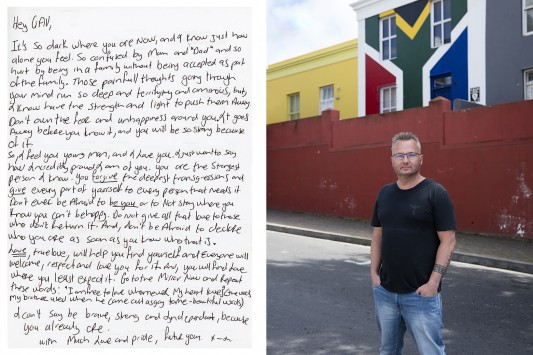 Hey GAV,
It's so dark where you are Now, and I know Just how
alone you feel. So confused by Mum and "Dad" and so
hurt by being in a family without being accepted as part
of the family. Those painfull thoughts going through
your mind run so deep and terrifying and amorous, but
I know have the strength and light to push them Away
Don't own the fear and unhappiness around you. It goes
Away before you know it, and you will be so strong because
of it.
So, I feel you young man, and I love you. I just want to say
how incredibly proud I am of you. you are the Strongest
person I know. You forgive the deepest transgressions and
give every part of yourself to every person that needs it
Don't ever be Afraid to be you or to Not stay where you
know you can't be happy. Do not give all that love to those
who don't return it. And, don't be Afraid to declare
who you are as soon as you know who that is.
Love, true love, will help you find yourself and Everyone will
welcome, respect and love you for it. And, you will find love
where you least expect it. Go to the Mirror Now and Repeat
these words: "I am free to love whomever My heart loves" (
my brother used when he came out as gay to me - beautiful words)
I can't say be brave, strong and independant, because
you already are.
with Much Love and pride, future you x-x